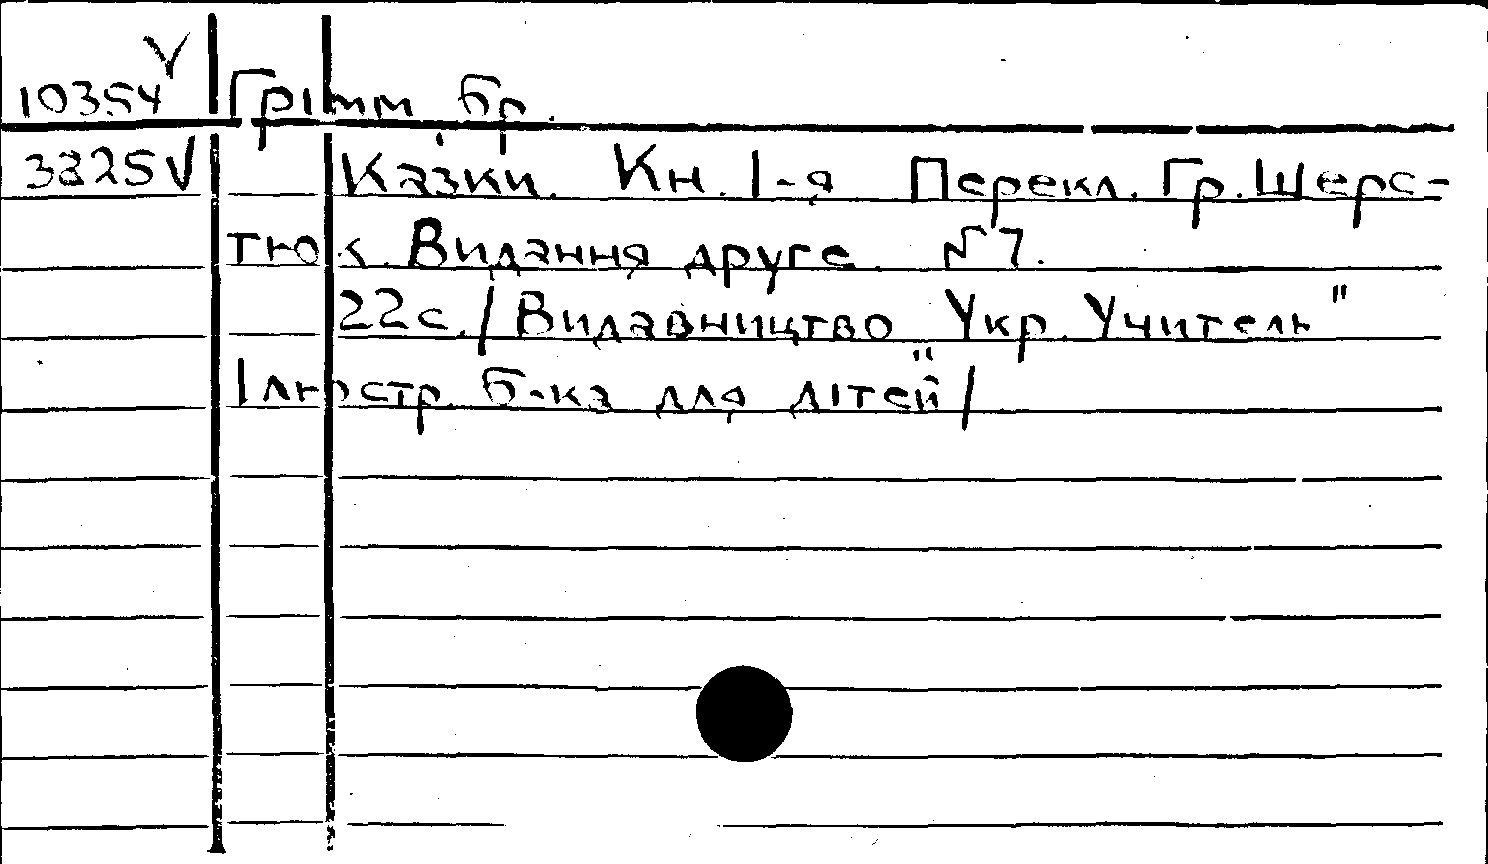 V
10354 Грімм, бр.
3825 V Казки. Кн. 1-я Перекл. Гр. Шерс-
тюк. Видання друге №7.
22с. / Видавництво Укр. Учитель"
Ілюстр. б-ка для дітей" /